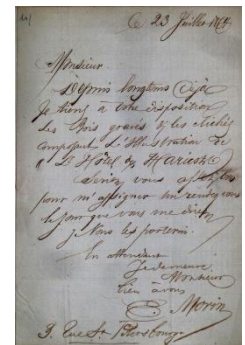 Ce 23 Juillet 1864
Monsieur
Depuis longtems déjà
je tiens à votre disposition
les Bois gravés & les clichés
composant l'Illustration de
L'Hôtel
vous
pour m'assigner un rendez vous
le jour que vous me direz
je vous les porterai.
En attendant
Je demeure
Monsieur
bien à vous
E. Morin
9. Rue St Pétersbourg